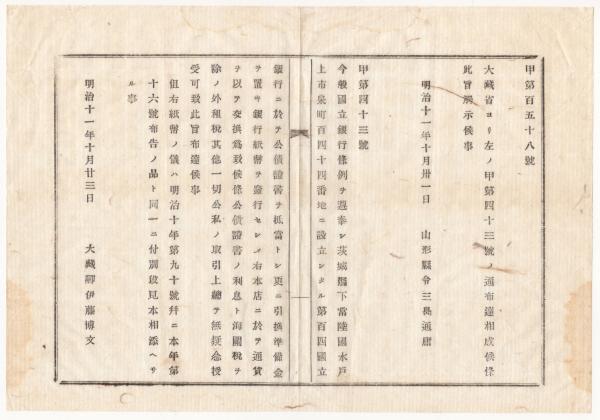 甲第百五十八號
大藏省ヨリ左ノ甲第四十三號ノ通布達相成候條
此旨揭示候事
明治十一年十月卅一日　山形縣令三島通庸
甲第四十三號
今般國立銀行條例ヲ遵奉シ茨城縣下常陸國水戶
上市泉町百四十四番地ニ設立シタル第百四國立
銀行ニ於テ公債證書ヲ抵當トシ更ニ引換準備金
ヲ置キ銀行紙幣ヲ發行セシメ右本店ニ於テ通貨
ヲ以テ交換爲致候條公債證書ノ利息ト海關稅ヲ
除ノ外租稅其他一切公私ノ取引上總テ無疑念授
受可致此旨布達候事
但右紙幣ノ儀ハ明治十年第九十號幷ニ本年第
十六號布告ノ品ト同一ニ付別段見本相添ヘサ
ル事
明治十一年十月廿三日　大藏卿伊藤博文